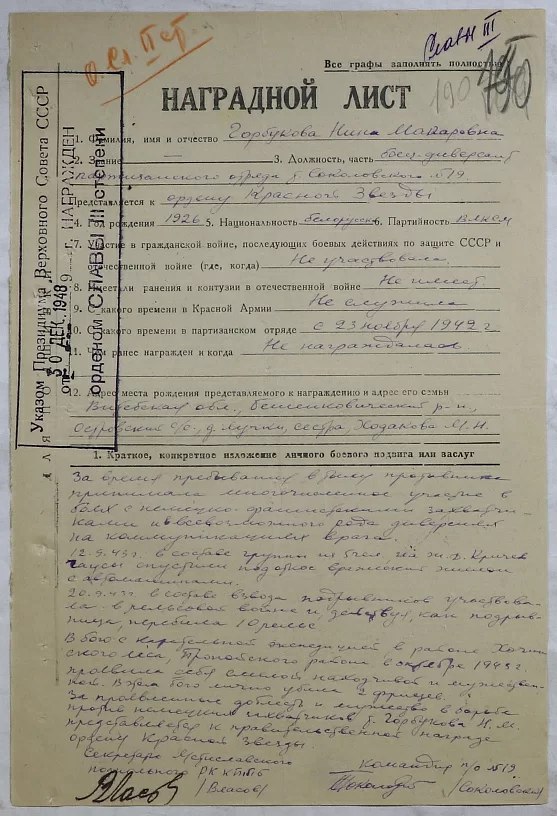 О. Сл. III ст
Славы III
Все графы заполнять полностью
190
НАГРАДНОЙ ЛИСТ
1. Фамилия, имя и отчество Горбукова Нина Макаровна
2. Звание — 3. Должность, часть боец-диверсант
партизанского отряда т. Соколовского №19
Представляется к ордену Красной Звезды
4. рождения 1926 5. Национальность белоруска 6. Партийность ВЛКСМ
7. Участие в гражданской войне, последующих боевых действиях по защите СССР и
отечественной войне (где, когда) Не участвовала
8. ранения и контузии в отечественной войне Не имеет
9. какого времени в Красной Армии Не служила
10. какого времени в партизанском отряде с 23 ноября 1942 г
11. ранее награжден и когда Не награждалась
12. Адрес места рождения представляемого к награждению и адрес его семьи
Витебская обл., Бешенковический р-н,
Островский с/с, д. Мучки, сестра Ходакова М. Н.
Указом Президиума Верховного Совета СССР
от 30 ДЕК. 1948 г. НАГРАЖДЕН
орденом СЛАВЫ III степени
1. Краткое, конкретное изложение личного боевого подвига или заслуг
За время пребывания в тылу противника
принимала многочисленное участие в
боях с немецко-фашистскими захватчи-
ками и всевозможного рода диверсиях
на коммуникациях врага.
12.9.43 г. в составе группы на ж.д. Кричев
Чаусы спустили под откос вражеский эшелон
с автомашинами.
20.9.43 г. в составе взвода подрывников участвова-
ла в рельсовой войне и действуя, как подрыв-
ница, перебила 10 рельс
В бою с карательной экспедицией в районе
ского леса, Пропойского района в октябре 1943 г.
проявила себя смелой находчивой и мужествен-
ной. В этом бою лично убила 2 фрицев.
За проявленные доблесть и мужество в борьбе
против немецких захватчиков т. Горбукова Н. М.
представляется к правительственной награде
ордену Красной Звезды.
Секретарь Мстиславского
подпольного РК КП(б)Б
Власов (Власов)
Командир п/о №19
Соколовский (Соколовский)